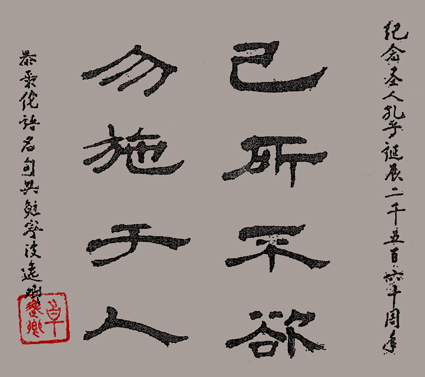 纪念圣人孔子诞辰二千五百六十周年
己所不欲
勿施于人
恭录论语名句共勉